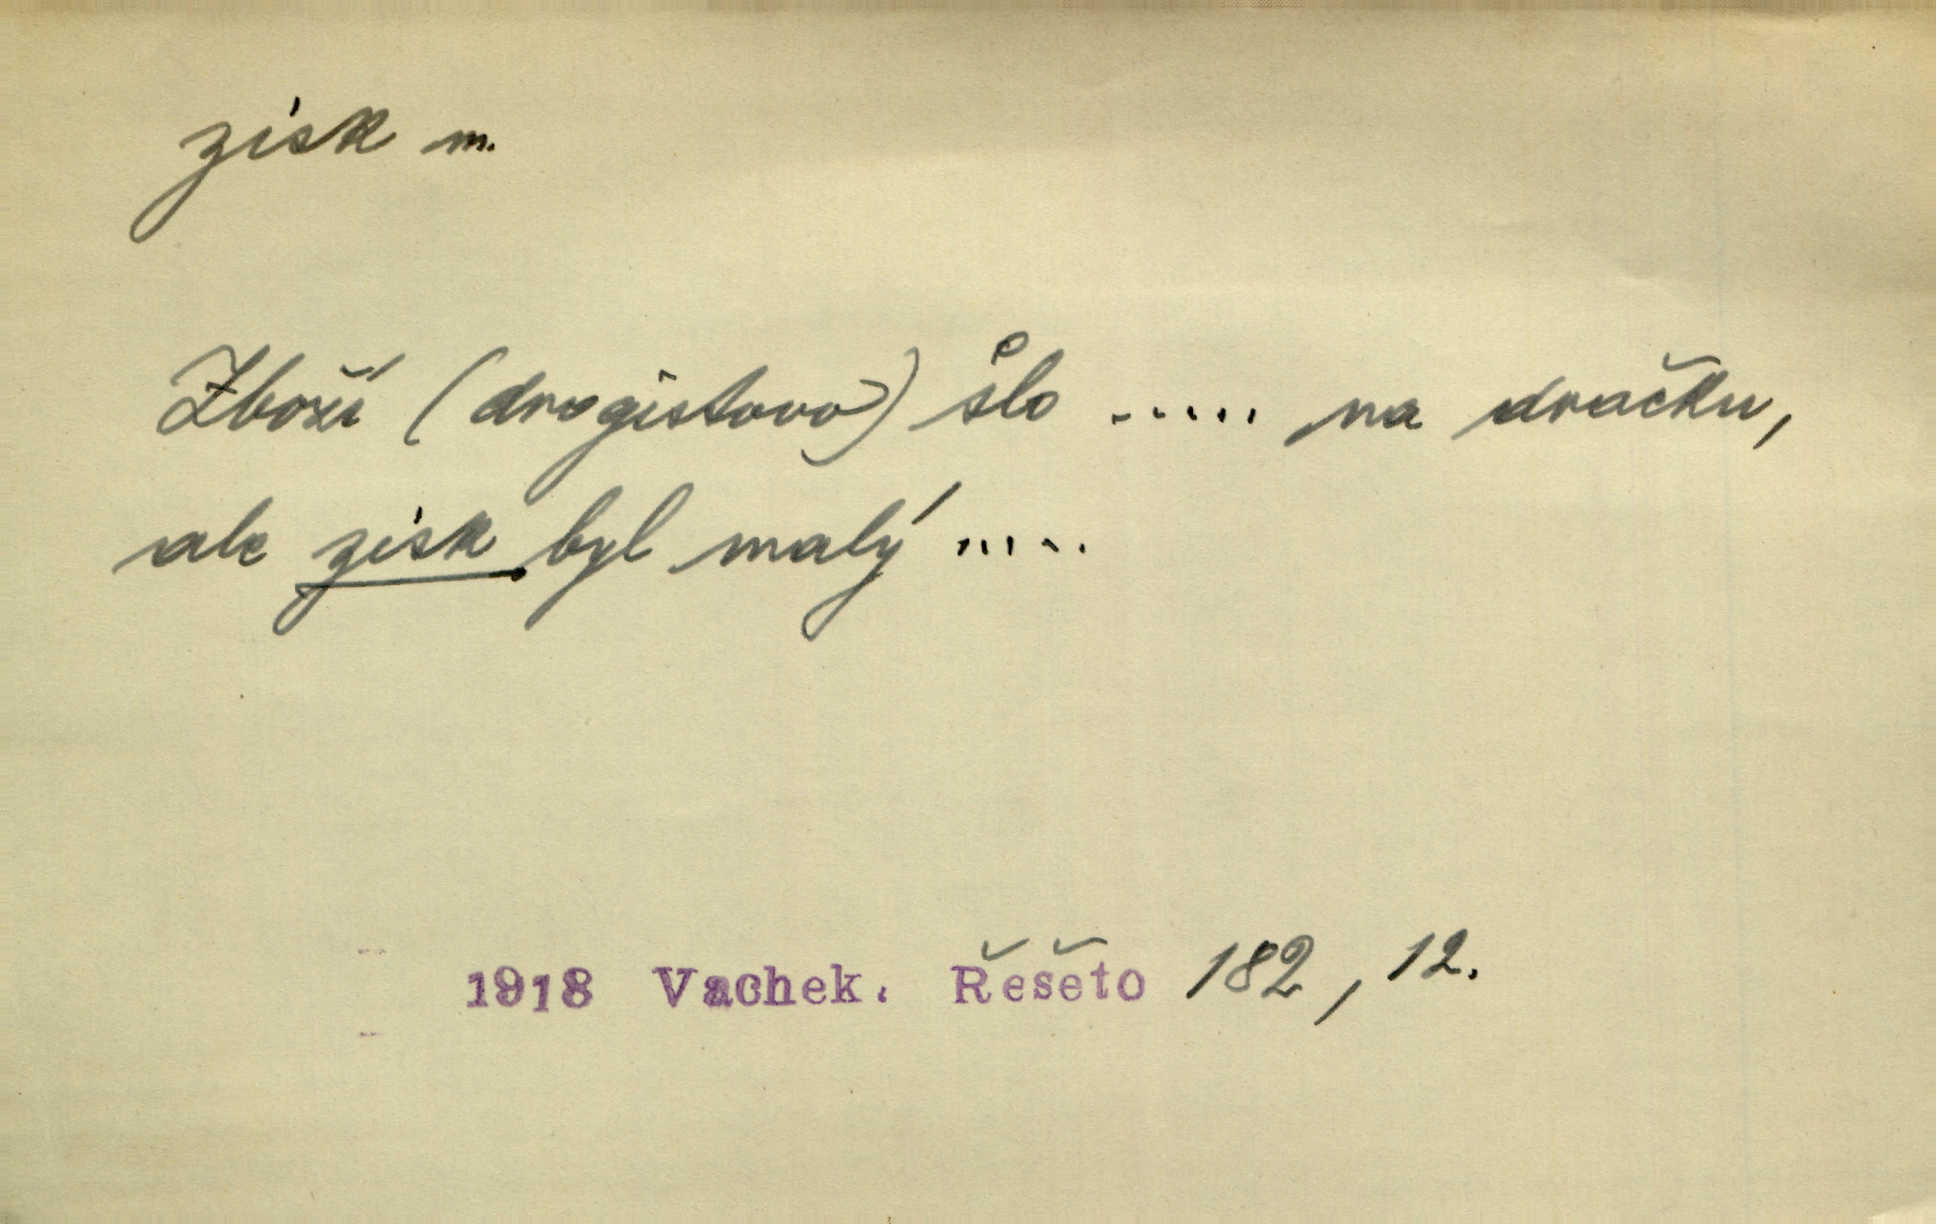 zisk m.
Zboží (drogistovo) šlo ..... na dračku,
ale zisk byl malý .....
1918 Vachek. Řešeto 182, 12.